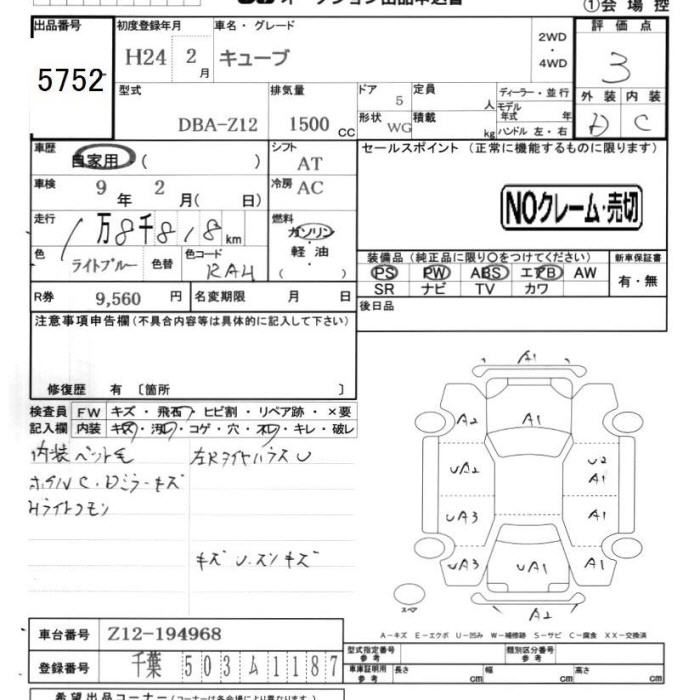 オークション出品申込書
①会場控
出品番号 初度登録年月 車名・グレード 評価点
5752 H24 2月 キューブ 2WD・4WD 3
型式 排気量 ドア 定員 ディーラー・並行 外装 内装
DBA-Z12 1500cc 5 人 モデル年式 年 D C
形状 WG 積載 kg ハンドル 左・右
車歴 自家用 ( ) シフト AT セールスポイント (正常に機能するものに限ります)
車検 9年 2月 ( 日) 冷房 AC
NOクレーム・売切
走行 1万8千818km 燃料 ガソリン
軽油
( )
色 ライトブルー 色替 色コード RAH
装備品 (純正品に限り○をつけてください) 新車保証書
PS PW ABS エアB AW 有・無
SR ナビ TV カワ
R券 9,560円 名変期限 月 日 後日品
注意事項申告欄 (不具合内容等は具体的に記入して下さい)
修復歴 有 〔箇所 〕
検査員 FW キズ・飛石・ヒビ割・リペア跡・×要
記入欄 内装 キズ・汚レ・コゲ・穴・スレ・キレ・破レ
内装ペット毛
ホイルC.Dミラーキズ
Hライトクモリ
キズ U.ズレキズ
A1
A2 A1
UA2 U2 A1
UA3 A1
UA3 UA1 A1
スペア A2
A-キズ E-エクボ U-凹み W-補修跡 S-サビ C-腐食 XX-交換済
車台番号 Z12-194968
登録番号 千葉 503 ム 1187
型式指定番号 類別区分番号
車庫証明用参考 長さ cm 幅 cm 高さ cm
希望出品コーナー (コーナーは各会場により異なります)